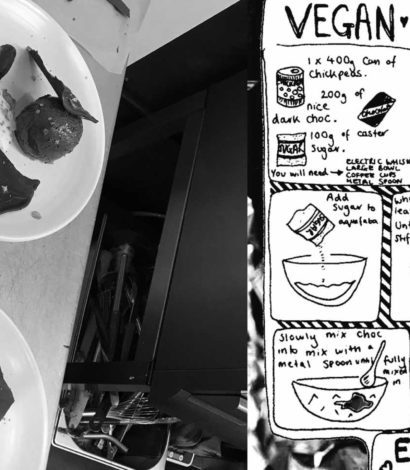 VEGAN
1 x 400g can of
chickpeas.
200g of
nice
dark choc.
Chocolate
100g of caster
sugar.
SUGAR
You will need → ELECTRIC WHISK
LARGE BOWL
COFFEE CUPS
METAL SPOON
Add
sugar to
aquafaba
SUGAR
Slowly mix choc
into mix with a
metal spoon until fully
mixed
in